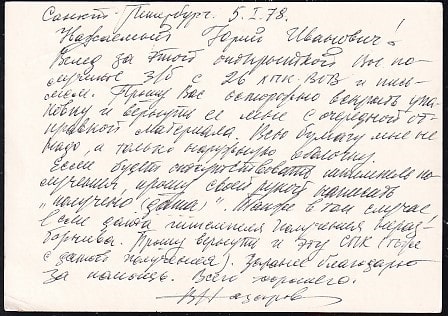 Санкт-Петербург. 5.I.78.
Уважаемый Юрий Иванович!
Вслед за этой открыткой Вы по-
лучите З/б с 26 ЛПК. ВОВ и пись-
мом. Прошу Вас осторожно вскрыть упа-
ковку и вернуть ее мне с очередной от-
правкой материала. Всю бумагу мне не
надо, а только наружную оболочку.
Если будет отсутствовать штемпель по-
лучения, прошу своей рукой написать
"получено (дата)". Также в том случае,
если дата штемпеля получения нераз-
борчива. Прошу вернуть и эту СПК (тоже
с датой получения). Заранее благодарю
за помощь. Всего хорошего.